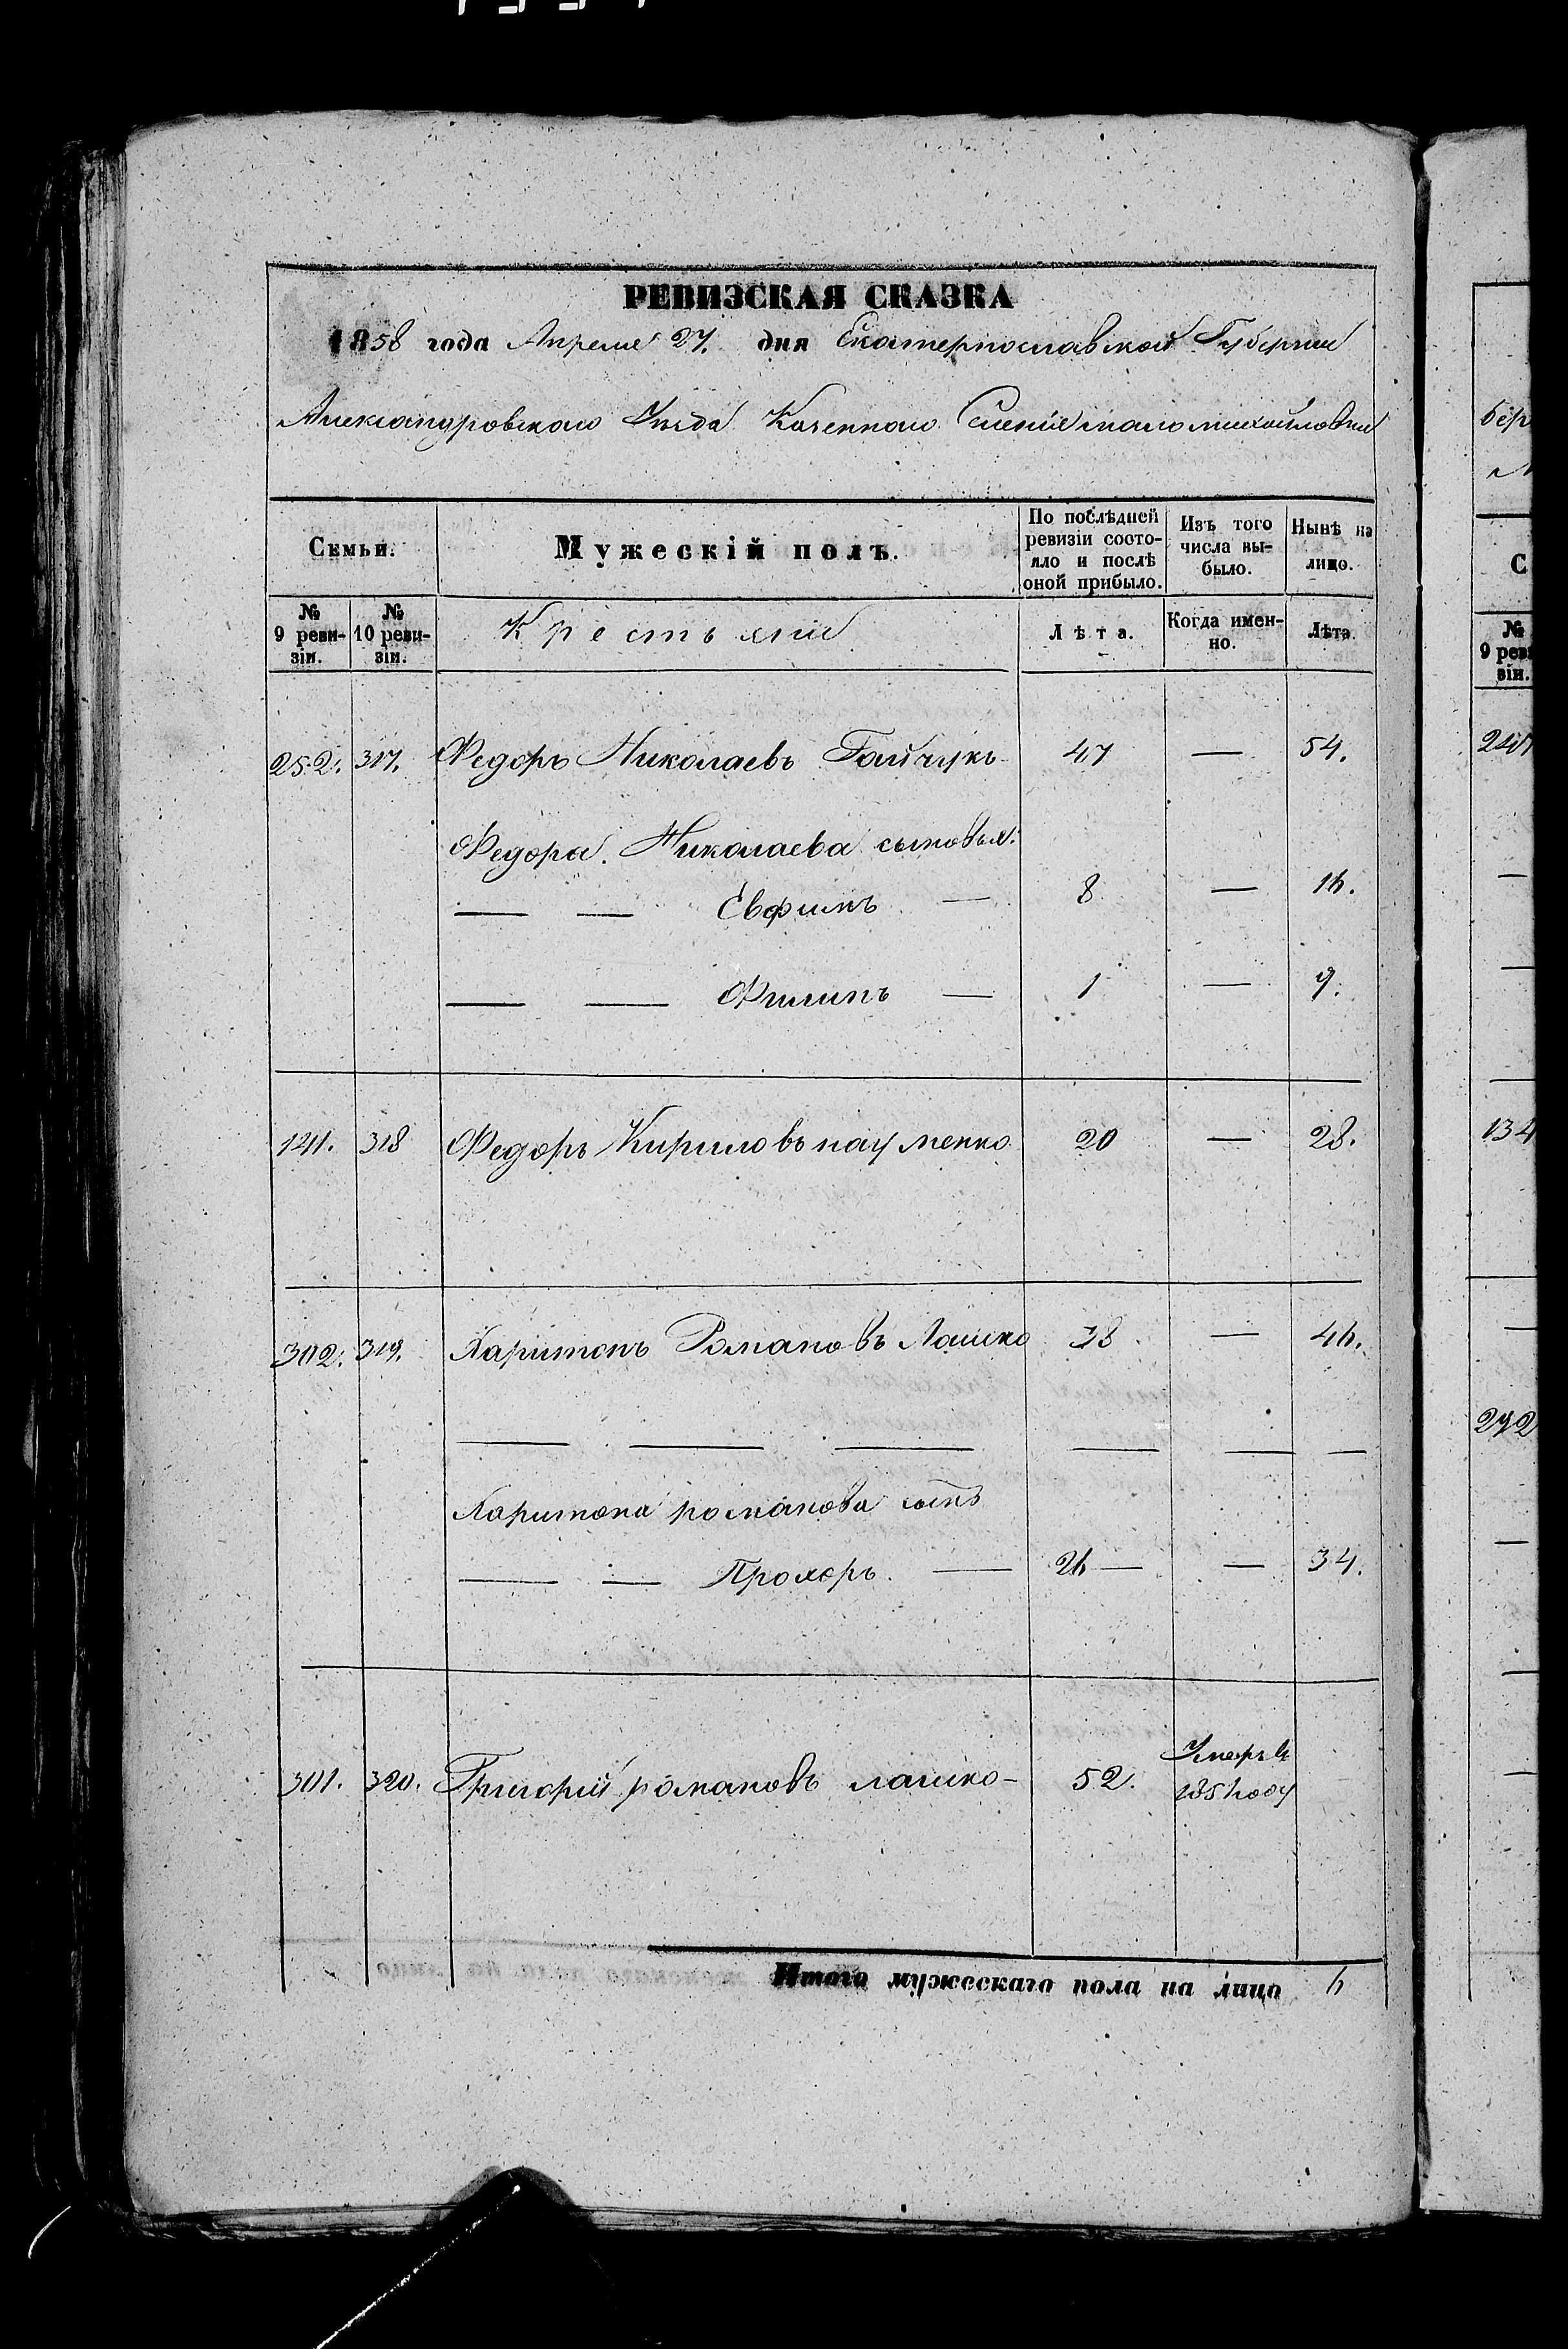 РЕВИЗСКАЯ СКАЗКА
1858 года Апреля 27. дня Екатеринославской Губернии
Александровского Уезда Казенного Селения маломихайловки
Семьи. Мужескій полъ. По послѣдней ревизіи состояло и послѣ оной прибыло. Изъ того числа выбыло. Нынѣ на лицо.
№ 9 ревизіи. № 10 ревизіи. Крестьяне Лѣта. Когда именно. Лѣта.
252. 317. Федоръ Николаевъ Гайчукъ 47 — 54.
Федора Николаева сыновья:
— — Евфимъ — 8 — 16.
— — Филипъ — 1 — 9.
141. 318 Федоръ Кириловъ науменко 20 — 28.
302. 319. Харитонъ Романовъ Лашко 38 — 46.
— — — — — —
Харитона романова сынъ
— — Прохоръ. — 26 — — 34.
301. 320. Григорій романовъ лашко — 52. Умеръ въ
185 году
Итого мужескаго пола на лицо 6
бер
С
№
9 реви
зіи.
134
292